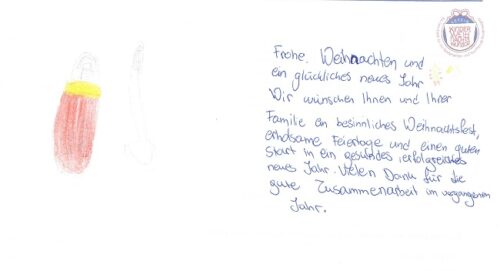 KINDER
Frohe Weihnachten und
ein glückliches neues Jahr
Wir wünschen Ihnen und Ihrer
Familie ein besinnliches Weihnachtsfest,
erholsame Feiertage und einen guten
Start in ein gesundes, erfolgreiches
neues Jahr. Vielen Dank für die
gute Zusammenarbeit im vergangenen
Jahr.